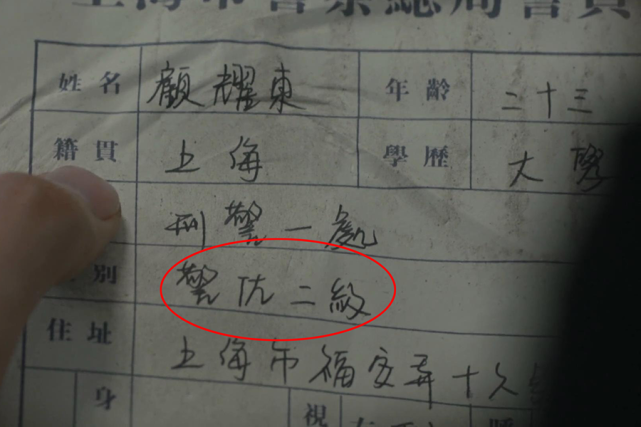 上海市警察總局會員
姓名 顧耀東 年齡 二十三
籍貫 上海 學歷 大學
刑警一處
別 警佐二級
住址 上海市福安弄十
身
視